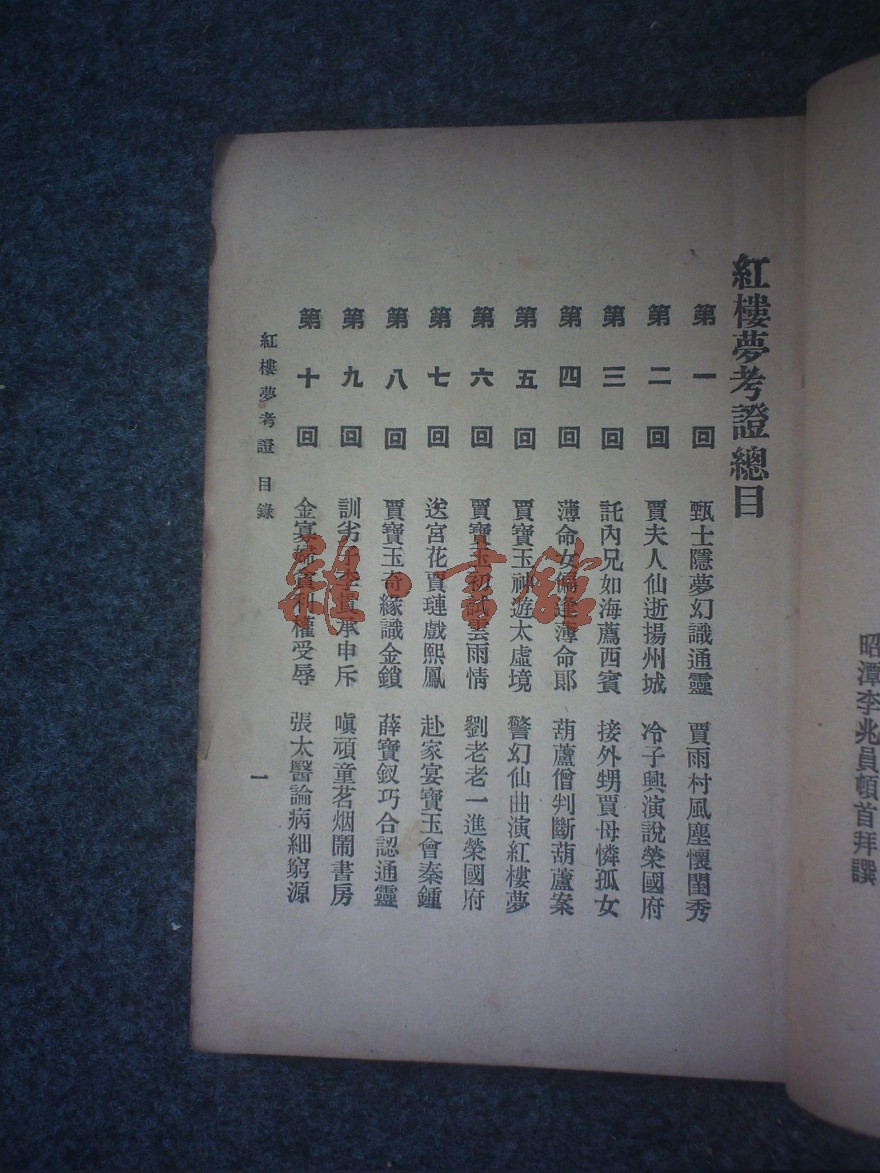 昭潭李兆員頓首拜譔
紅樓夢考證總目
第一回 甄士隱夢幻識通靈 賈雨村風塵懷閨秀
第二回 賈夫人仙逝揚州城 冷子興演說榮國府
第三回 託內兄如海薦西賓 接外甥賈母憐孤女
第四回 薄命女偏逢薄命郎 葫蘆僧判斷葫蘆案
第五回 賈寶玉神遊太虛境 警幻仙曲演紅樓夢
第六回 賈寶玉初試雲雨情 劉老老一進榮國府
第七回 送宮花賈璉戲熙鳳 赴家宴寶玉會秦鍾
第八回 賈寶玉奇緣識金鎖 薛寶釵巧合認通靈
第九回 訓劣子李貴承申斥 嗔頑童茗烟鬧書房
第十回 金寡婦貪利權受辱 張太醫論病細窮源
紅樓夢考證 目錄 一
雜·書館